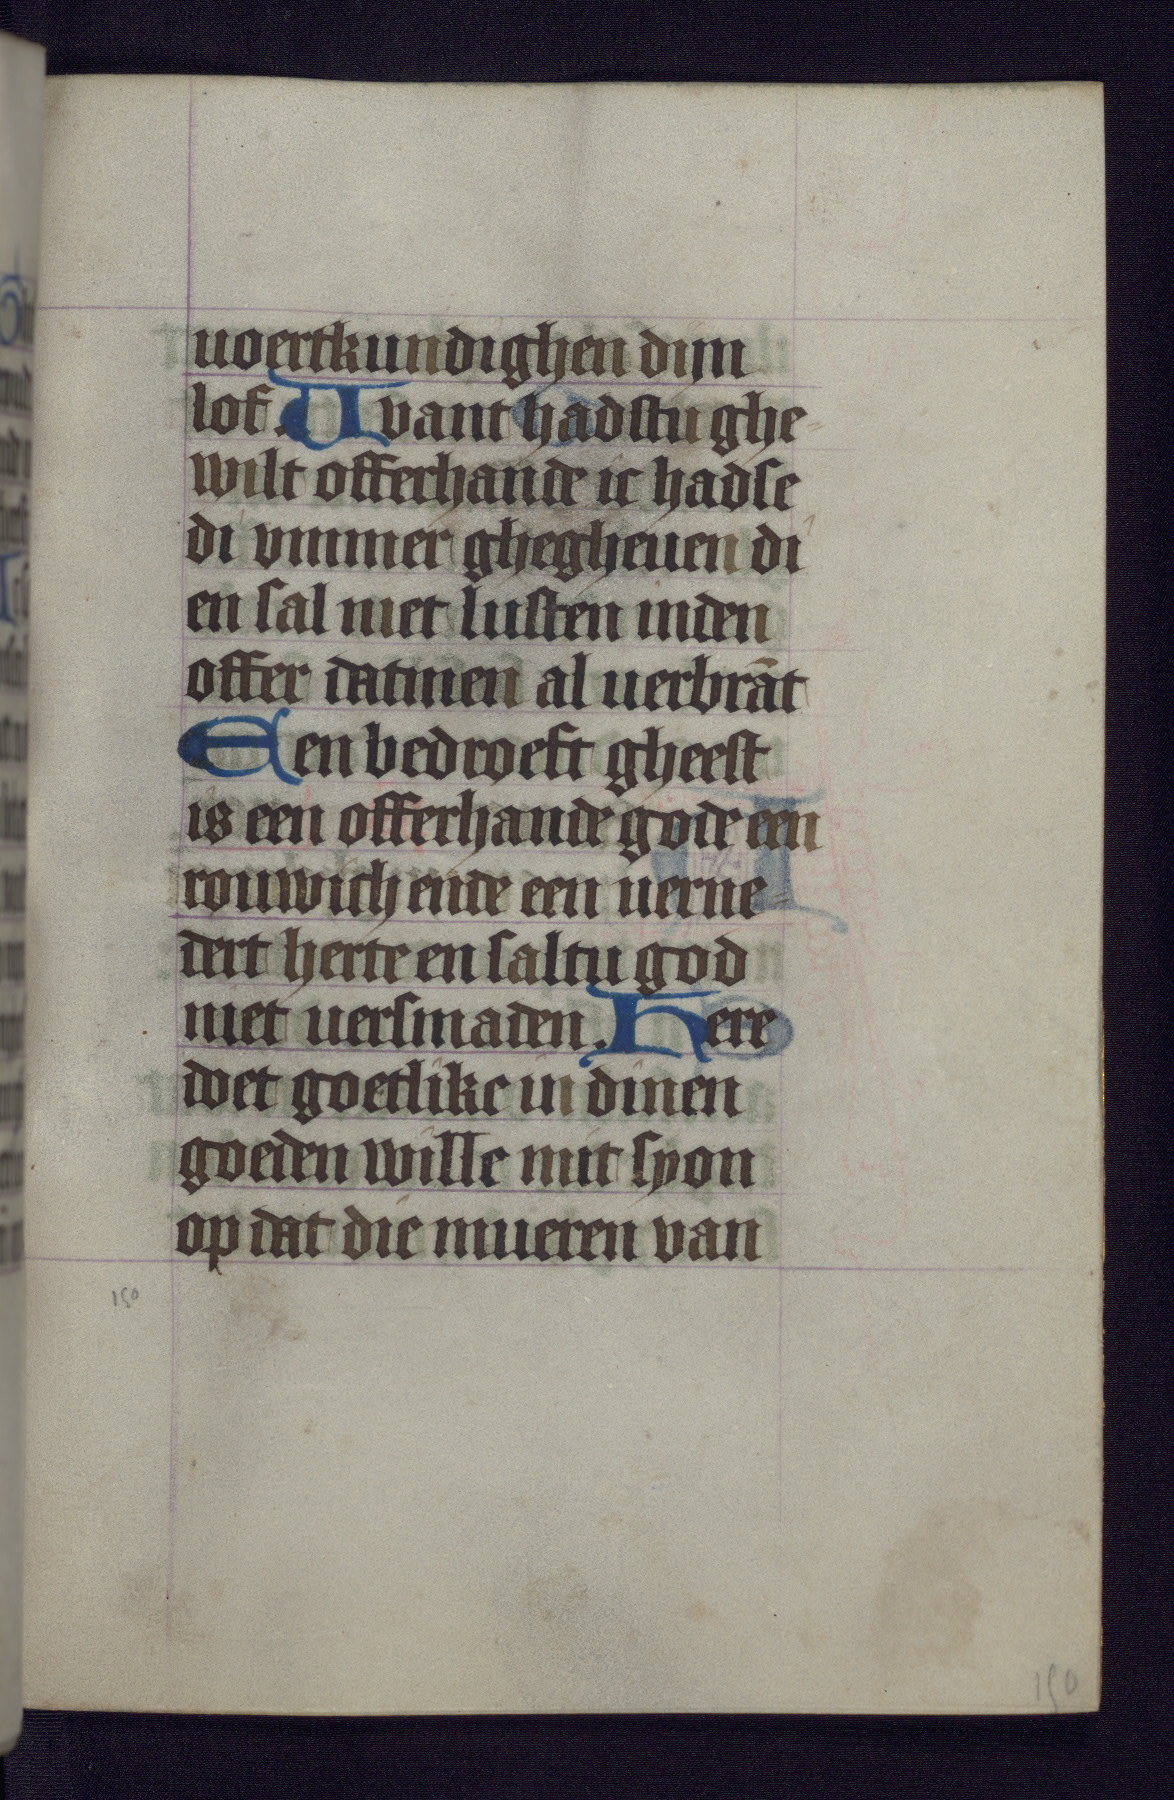 uoertkundighen dijn
lof. Uvant hadstu ghe-
wilt offerhande ic hadse
di vmmer ghegheuen di
en sal niet lusten inden
offer datmen al uerbrāt
Een bedroeft gheest
is een offerhande gode een
rouwich ende een uerne-
dert herte en saltu god
niet uersmaden. Here
doet goetlike in dinen
goeden wille mit syon
op dat die mueren van
150
150